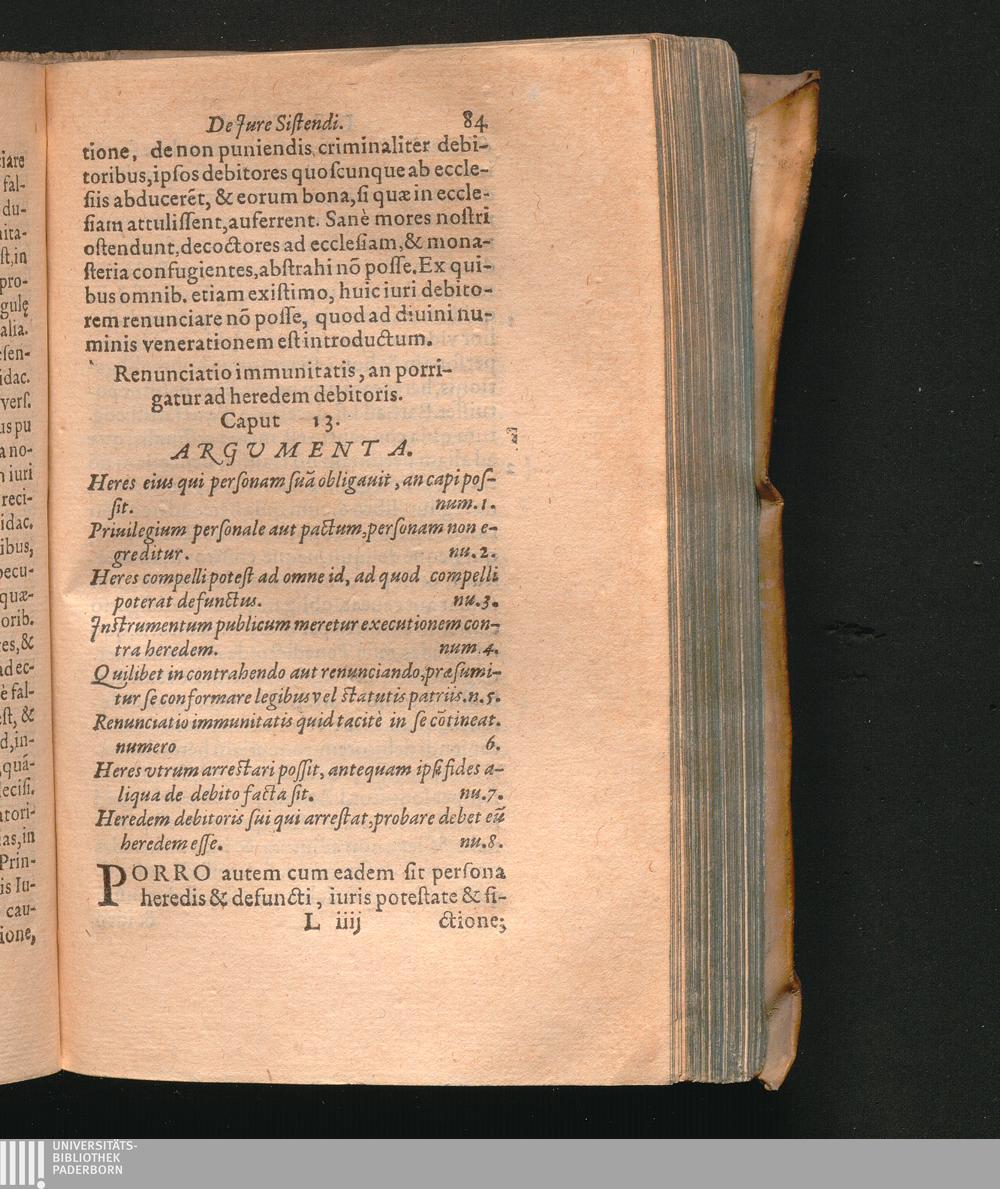 De Jure Sistendi. 84
tione, de non puniendis criminaliter debi-
toribus, ipsos debitores quoscunque ab eccle-
siis abducerēt, & eorum bona, si quæ in eccle-
siam attulissent, auferrent. Sanè mores nostri
ostendunt, decoctores ad ecclesiam, & mona-
steria confugientes, abstrahi nō posse. Ex qui-
bus omnib. etiam existimo, huic iuri debito-
rem renunciare nō posse, quod ad diuini nu-
minis venerationem est introductum.
Renunciatio immunitatis, an porri-
gatur ad heredem debitoris.
Caput 13.
ARGVMENTA.
Heres eius qui personam suā obligauit, an capi pos-
sit. num. 1.
Priuilegium personale aut pactum, personam non e-
greditur. nu. 2.
Heres compelli potest ad omne id, ad quod compelli
poterat defunctus. nu. 3.
Instrumentum publicum meretur executionem con-
tra heredem. num. 4.
Quilibet in contrahendo aut renunciando, præsumi-
tur se conformare legibus vel statutis patriis. n. 5.
Renunciatio immunitatis quid tacitè in se cōtineat.
numero 6.
Heres vtrum arrestari possit, antequam ipsi fides a-
liqua de debito facta sit. nu. 7.
Heredem debitoris sui qui arrestat, probare debet eū
heredem esse. nu. 8.
PORRO autem cum eadem sit persona
heredis & defuncti, iuris potestate & fi-
L iiij ctione;
iare
fal-
du-
nita-
st, in
pro-
gulę
alia.
efen-
idac.
vers.
us pu
a no-
n iuri
reci-
idac.
ibus,
pecu-
quæ-
orib.
es, &
ad ec-
è fal-
est, &
d, in-
, quá-
lecisi.
atori-
as, in
Prin-
is Iu-
cau-
ione,
UNIVERSITÄTS-
BIBLIOTHEK
PADERBORN